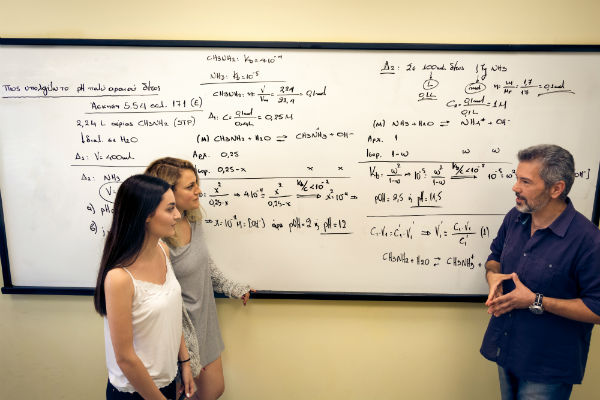 Πως υπολογίζω το pH πολύ αραιού δ/τος
Άσκηση 5.54 σελ. 171 (Ε)
2,24 L αέριας CH3NH2 (STP)
↓διαλ. σε H2O
Δ1: V=400ml
Δ2: NH3
α) pH
β)
CH3NH2: Kb=4·10⁻⁴
NH3: Kb=10⁻⁵
CH3NH2: n= V/Vm = 2,24/22,4 = 0,1mol
Δ1: C= 0,1mol/0,4L = 0,25M
(M) CH3NH2 + H2O ⇌ CH3NH3⁺ + OH⁻
Αρχ. 0,25
Ισορ. 0,25-x x x
x²/0,25-x ⇒ 4·10⁻⁴ = x²/0,25-x
⇒ x=10⁻²M=[OH⁻] άρα pOH=2 ή pH=12
Δ2: Σε 100mL δ/τος 1,7g NH3
0,1L mol n= m/Mr = 1,7/17 = 0,1mol
C2= 0,1mol/0,1L = 1M
(M) NH3 + H2O ⇌ NH4⁺ + OH⁻
Αρχ. 1
Ισορ. 1-ω ω ω
Kb= ω²/1-ω ⇒ 10⁻⁵= ω²/1-ω
pOH=2,5 ή pH=11,5
C1·V1=C1'·V1' ⇒ V1'= C1·V1/C1' (1)
CH3NH2 + H2O ⇌ CH3NH3⁺ +